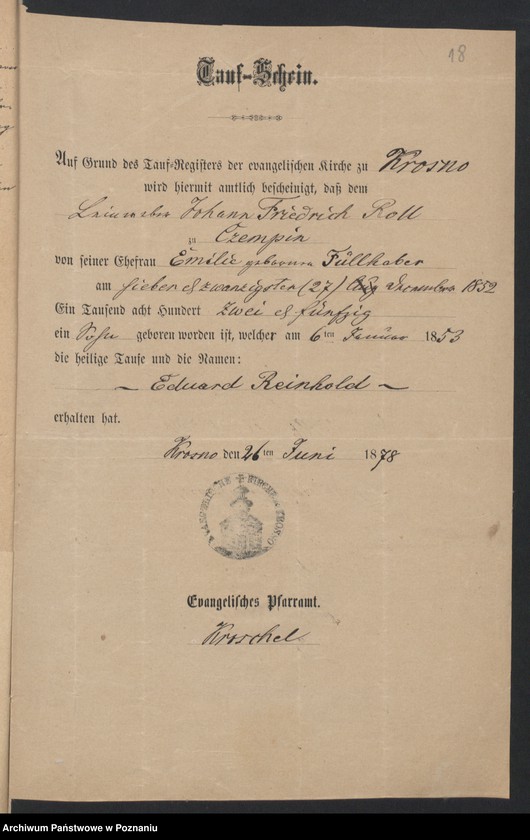 18
Tauf-Schein.
Auf Grund des Tauf-Registers der evangelischen Kirche zu Krosno
wird hiermit amtlich bescheinigt, daß dem
Leinweber Johann Friedrich Roll
zu Czempin
von seiner Ehefrau Emilie geborenen Füllhaber
am sieben & zwanzigsten (27) Dezember 1852
Ein Tausend acht Hundert zwei & fünfzig
ein Sohn geboren worden ist, welcher am 6ten Januar 1853
die heilige Taufe und die Namen:
– Eduard Reinhold –
erhalten hat.
Krosno den 26ten Juni 1878
KIRCHE
Evangelisches Pfarramt.
Kroschel
Archiwum Państwowe w Poznaniu